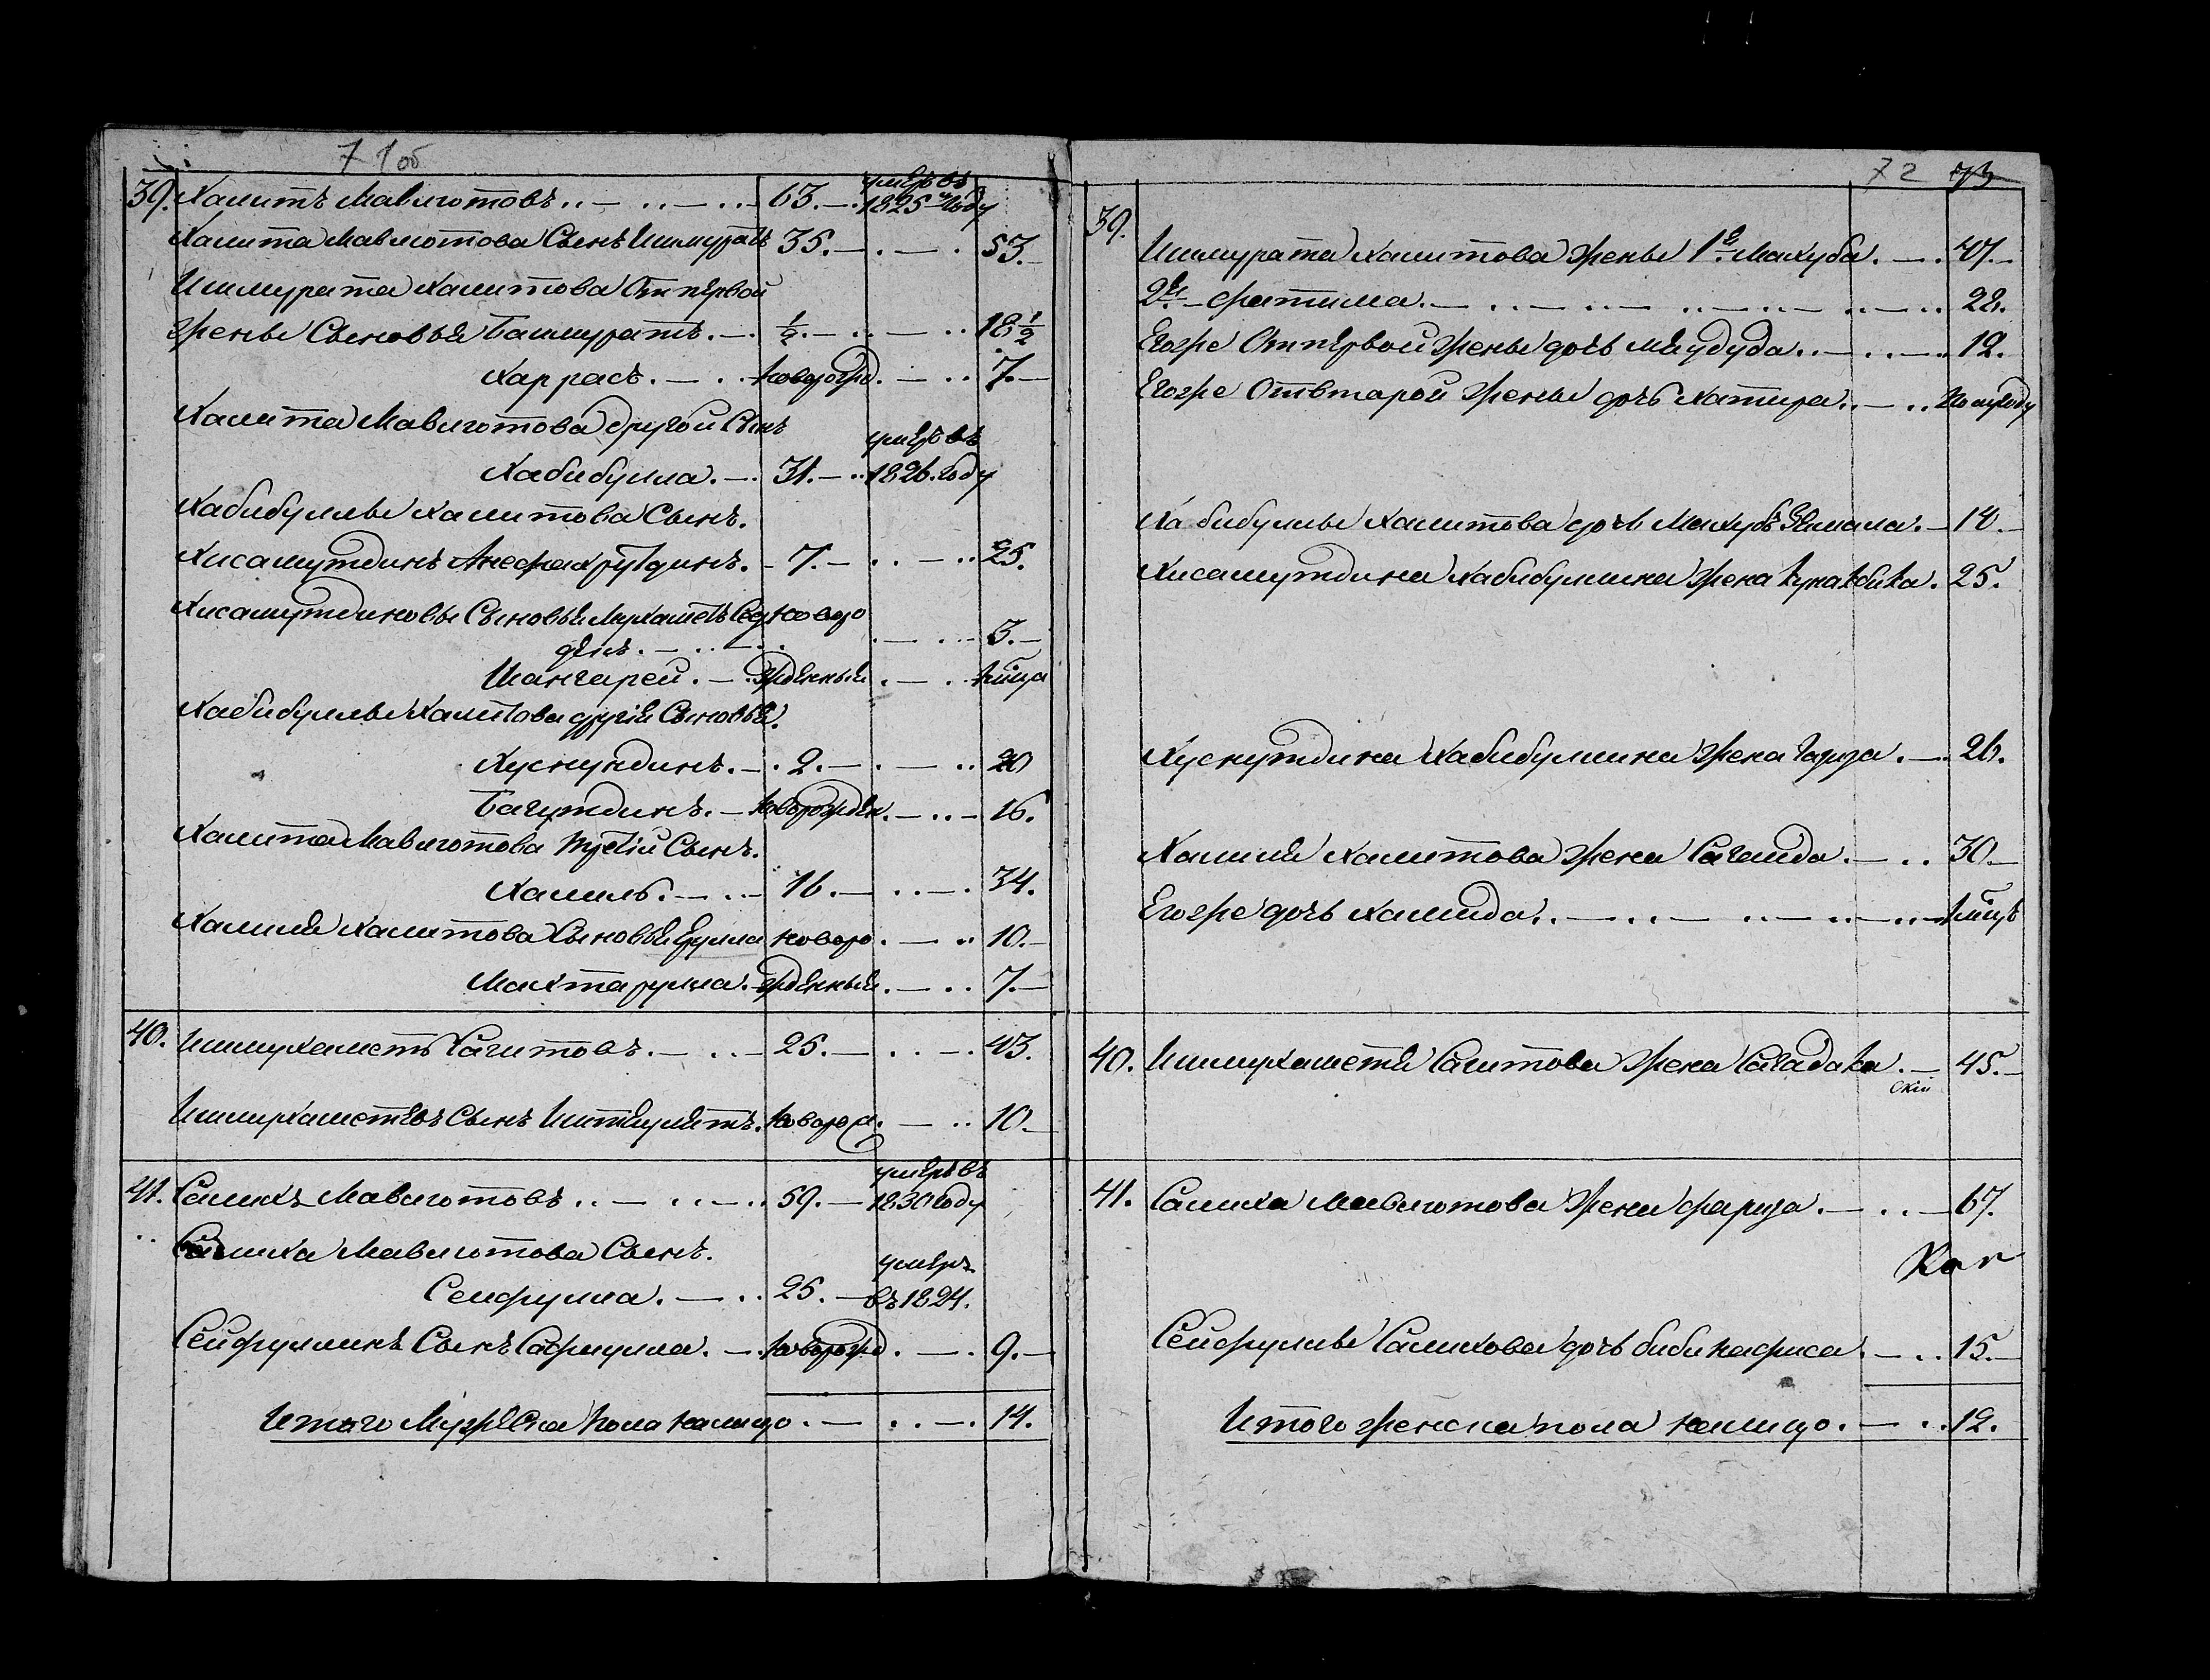 71 об
39. Халитъ Мавлютовъ 63. умеръ въ 1825 году
Халита Мавлютова Сынъ Ишмуратъ 35. 53.
Ишмурата Халитова От первой
жены Сыновья Башмуратъ. ½. 18½
Харрасъ. новорожд. 7.
Халита Мавлютова другой Сынъ
Хабибулла. 31. умеръ въ 1826. году
Хабибуллы Халитова Сынъ.
Хисамутдинъ Анефахрутдинъ. 7. 25.
Хисамутдиновы Сыновья Мухаметъ Сад новоро
динъ. 3.
Шангарей. жденныя. 1 мѣца
Хабибуллы Халитова другія Сыновья.
Хуснундинъ. 2. 20
Багутдинъ. новорожден. 16.
Халита Мавлютова третій Сынъ.
Халиль. 16. 34.
Халиля Халитова Сыновья новоро. 10.
Махтарулла. жденныя. 7.
40. Ишмухаметъ Сагитовъ. 25. 43.
Ишмухаметевъ Сынъ новорож. 10.
41. Салихъ Мавлютовъ 59. умеръ въ 1830 году
Салиха Мавлютова Сынъ.
Сейфулла. 25. умеръ въ 1824.
Сейфуллинъ Сынъ Сафиулла. новорожд. 9.
Итого Мужеска пола налицо. 14.
72 73
39.
Ишмурата Халитова жены 1я Махуба. 47.
2я Фатима. 22.
Егоже От первой жены дочь Мяудуда. 12.
Егоже От второй жены дочь Хатира. полугоду
Хабибуллы Халитова дочь Махубъ Зямала. 14.
Хисамутдина Хабибуллина жена Кунакбика. 25.
Хуснутдина Хабибуллина жена 26.
Халиля Халитова жена Сагида. 30.
Егоже дочь Халида. 1 мѣцъ
40. Ишмухаметя Сагитова жена Сагадака 45.
ский
41. Салиха Мавлютова жена Фариза. 67.
Кан
Сейфуллы Салихова дочь Бибинафиса. 15.
Итого женска пола налицо. 12.